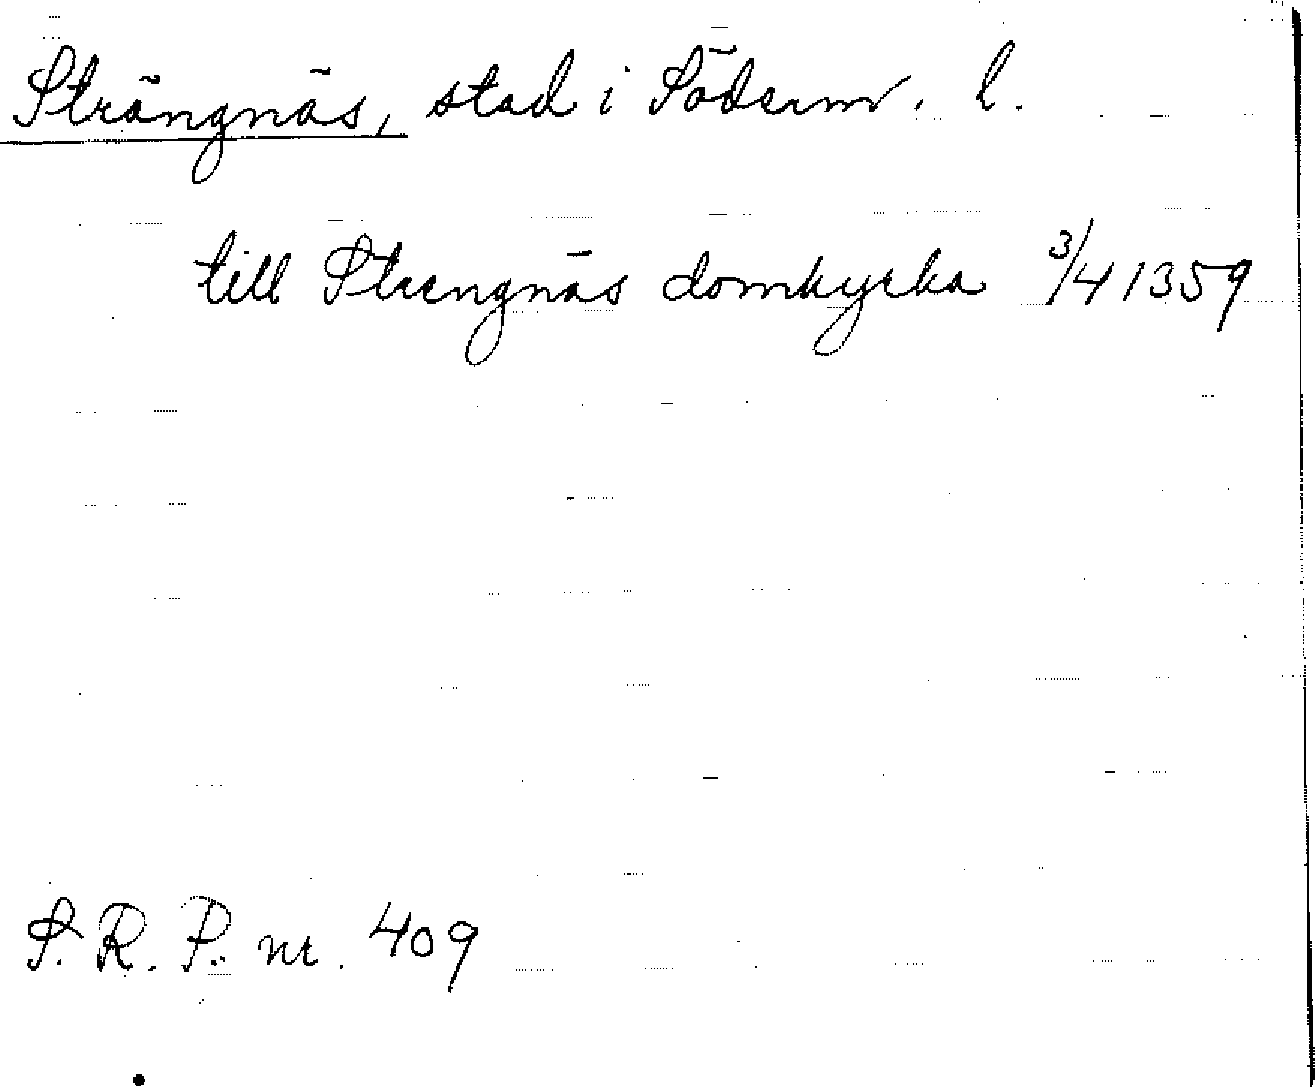 Strängnäs, stad i Söderm. l.
till Strengnäs domkyrka 3/4 1359
S. R. P. nr. 409